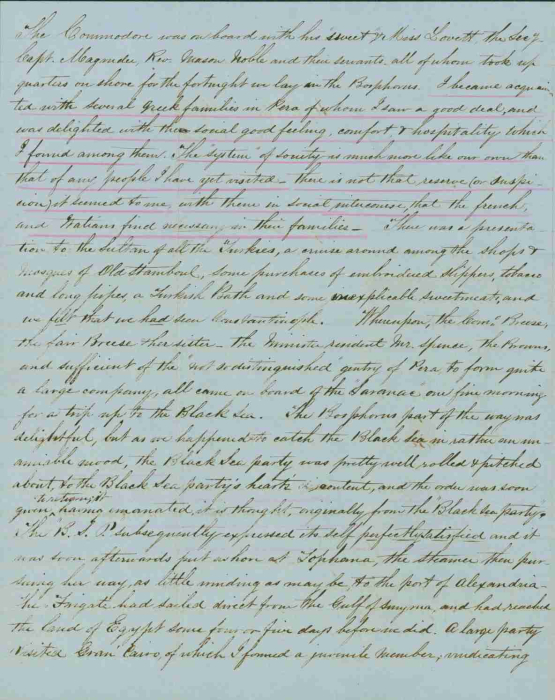 The Commodore was on board with his "sweet" & Miss Lovett, the Secy
Capt. Magruder, Rev. Mason Noble and their servants all of whom took up
quarters on shore for the fortnight we lay in the Bosphorus. I became acquain
ted with several Greek families in Pera of whom I saw a good deal, and
was delighted with the social good feeling, comfort & hospitality which
I found among them. The "system" of society is much more like our own than
that of any people I have yet visited – there is not that reserve (or suspi
cion) it seemed to me, with them in social intercourse, that the french,
and Italians find necessary in their families – There was a presenta
tion to the Sultan of all the Turkies, a cruise around among the shops &
mosques of Old Stamboul, some purchases of embroidered slippers, tobacco
and long pipes, a Turkish Bath and some inexplicable sweetmeat, and
we felt that we had seen Constantinople. Whereupon, the Com. Breese,
the fair Breese & her sister – the Minister resident Mr. Spence, the Browns,
and sufficient of the "not so distinguished" gentry of Pera to form quite
a large company, all came on board of the "Saranac" one fine morning
for a trip up to the Black Sea. The Bosphorus part of the way was
delightful, but as we happened to catch the Black Sea in rather an un-
amiable mood, the Black Sea party was pretty well rolled & pitched
about, to the Black Sea party's heart's content, and the order was soon
to return, it
given, having emanated, it is thought, originally from the "Black Sea party."
The B. S. P. subsequently expressed its self perfectly satisfied and it
was soon afterwards put ashore at Tophana, the steamer then pur
suing her way, as little minding as may be to the port of Alexandria –
The Frigate had sailed direct from the Gulf of Smyrna, and had reached
the land of Egypt some four or five days before we did. A large party
visited Gran Cairo, of which I formed a juvenile member, vindicating